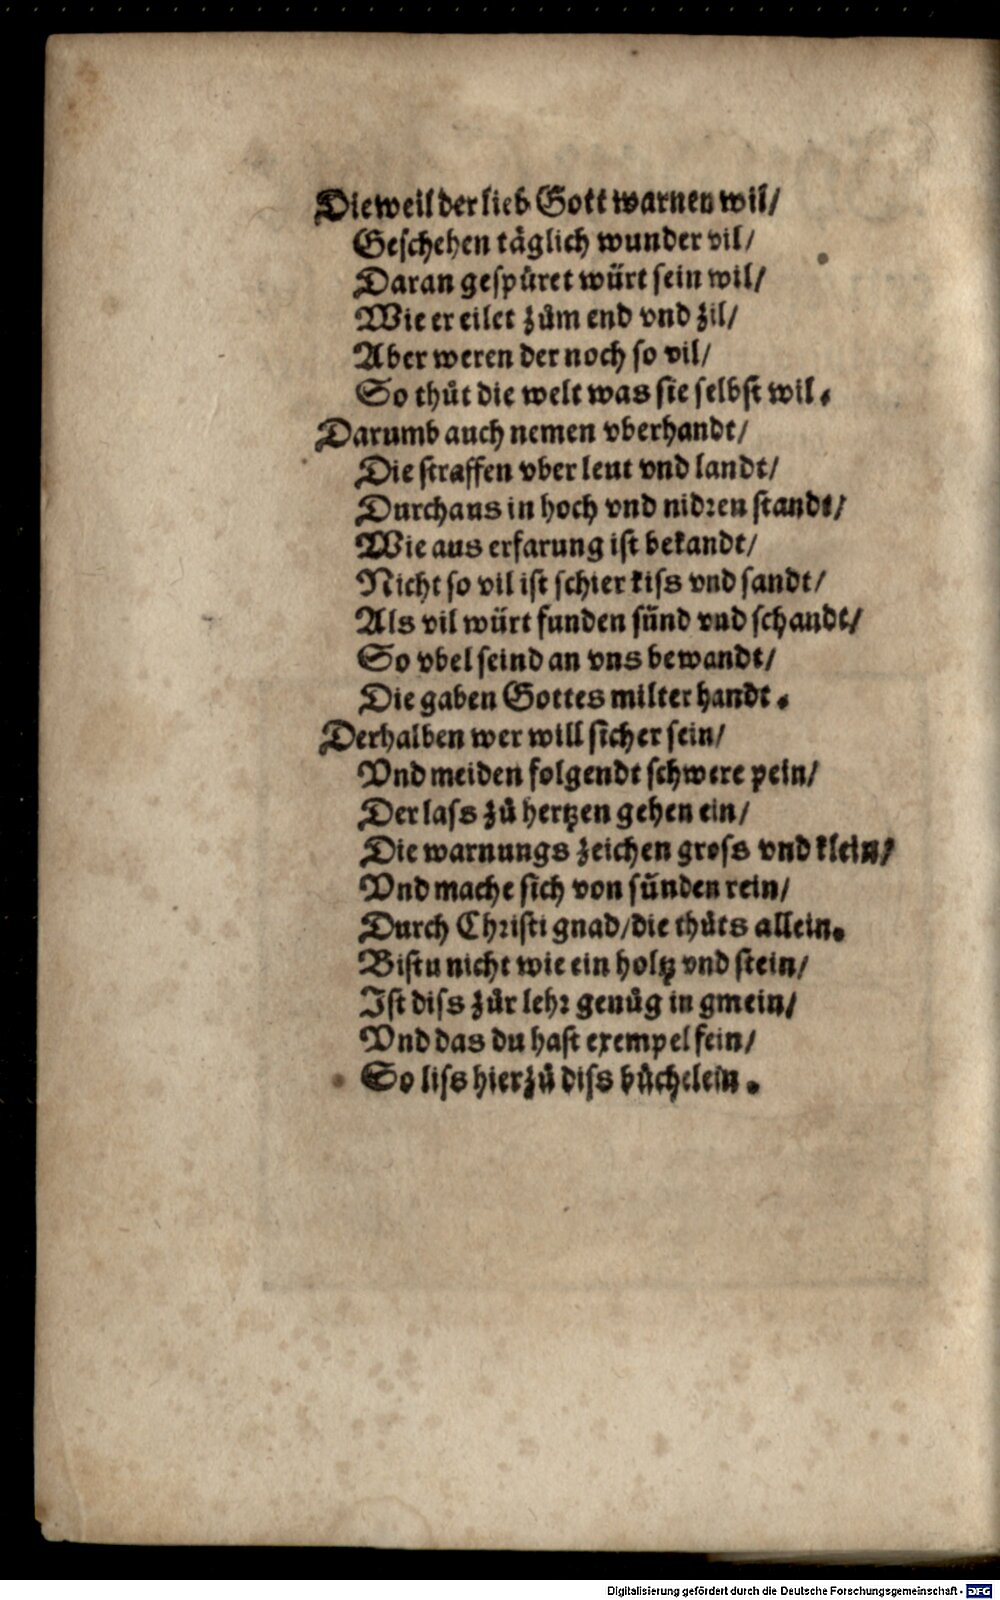 Dieweil der lieb Gott warnen wil/
Geschehen täglich wunder vil/
Daran gespüret würt sein wil/
Wie er eilet zům end vnd zil/
Aber weren der noch so vil/
So thůt die welt was sie selbst wil.
Darumb auch nemen vberhandt/
Die straffen vber leut vnd landt/
Durchaus in hoch vnd nidren standt/
Wie aus erfarung ist bekandt/
Nicht so vil ist schier kiss vnd sandt/
Als vil würt funden sünd vnd schandt/
So vbel seind an vns bewandt/
Die gaben Gottes milter handt.
Derhalben wer will sicher sein/
Vnd meiden folgendt schwere pein/
Der lass zů hertzen gehen ein/
Die warnungs zeichen gross vnd klein/
Vnd mache sich von sünden rein/
Durch Christi gnad/die thůts allein.
Bistu nicht wie ein holtz vnd stein/
Ist diss zůr lehr genůg in gmein/
Vnd das du hast exempel fein/
So liss hierzů diss büchelein.
Digitalisierung gefördert durch die Deutsche Forschungsgemeinschaft - DFG